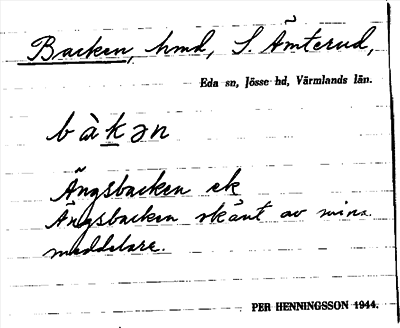 Backen, hmd, S. Åmterud,
Eda sn, Jösse hd, Värmlands län.
bàkən
Ängsbacken ek
Ängsbacken okänt av mina
meddelare.
PER HENNINGSSON 1944.